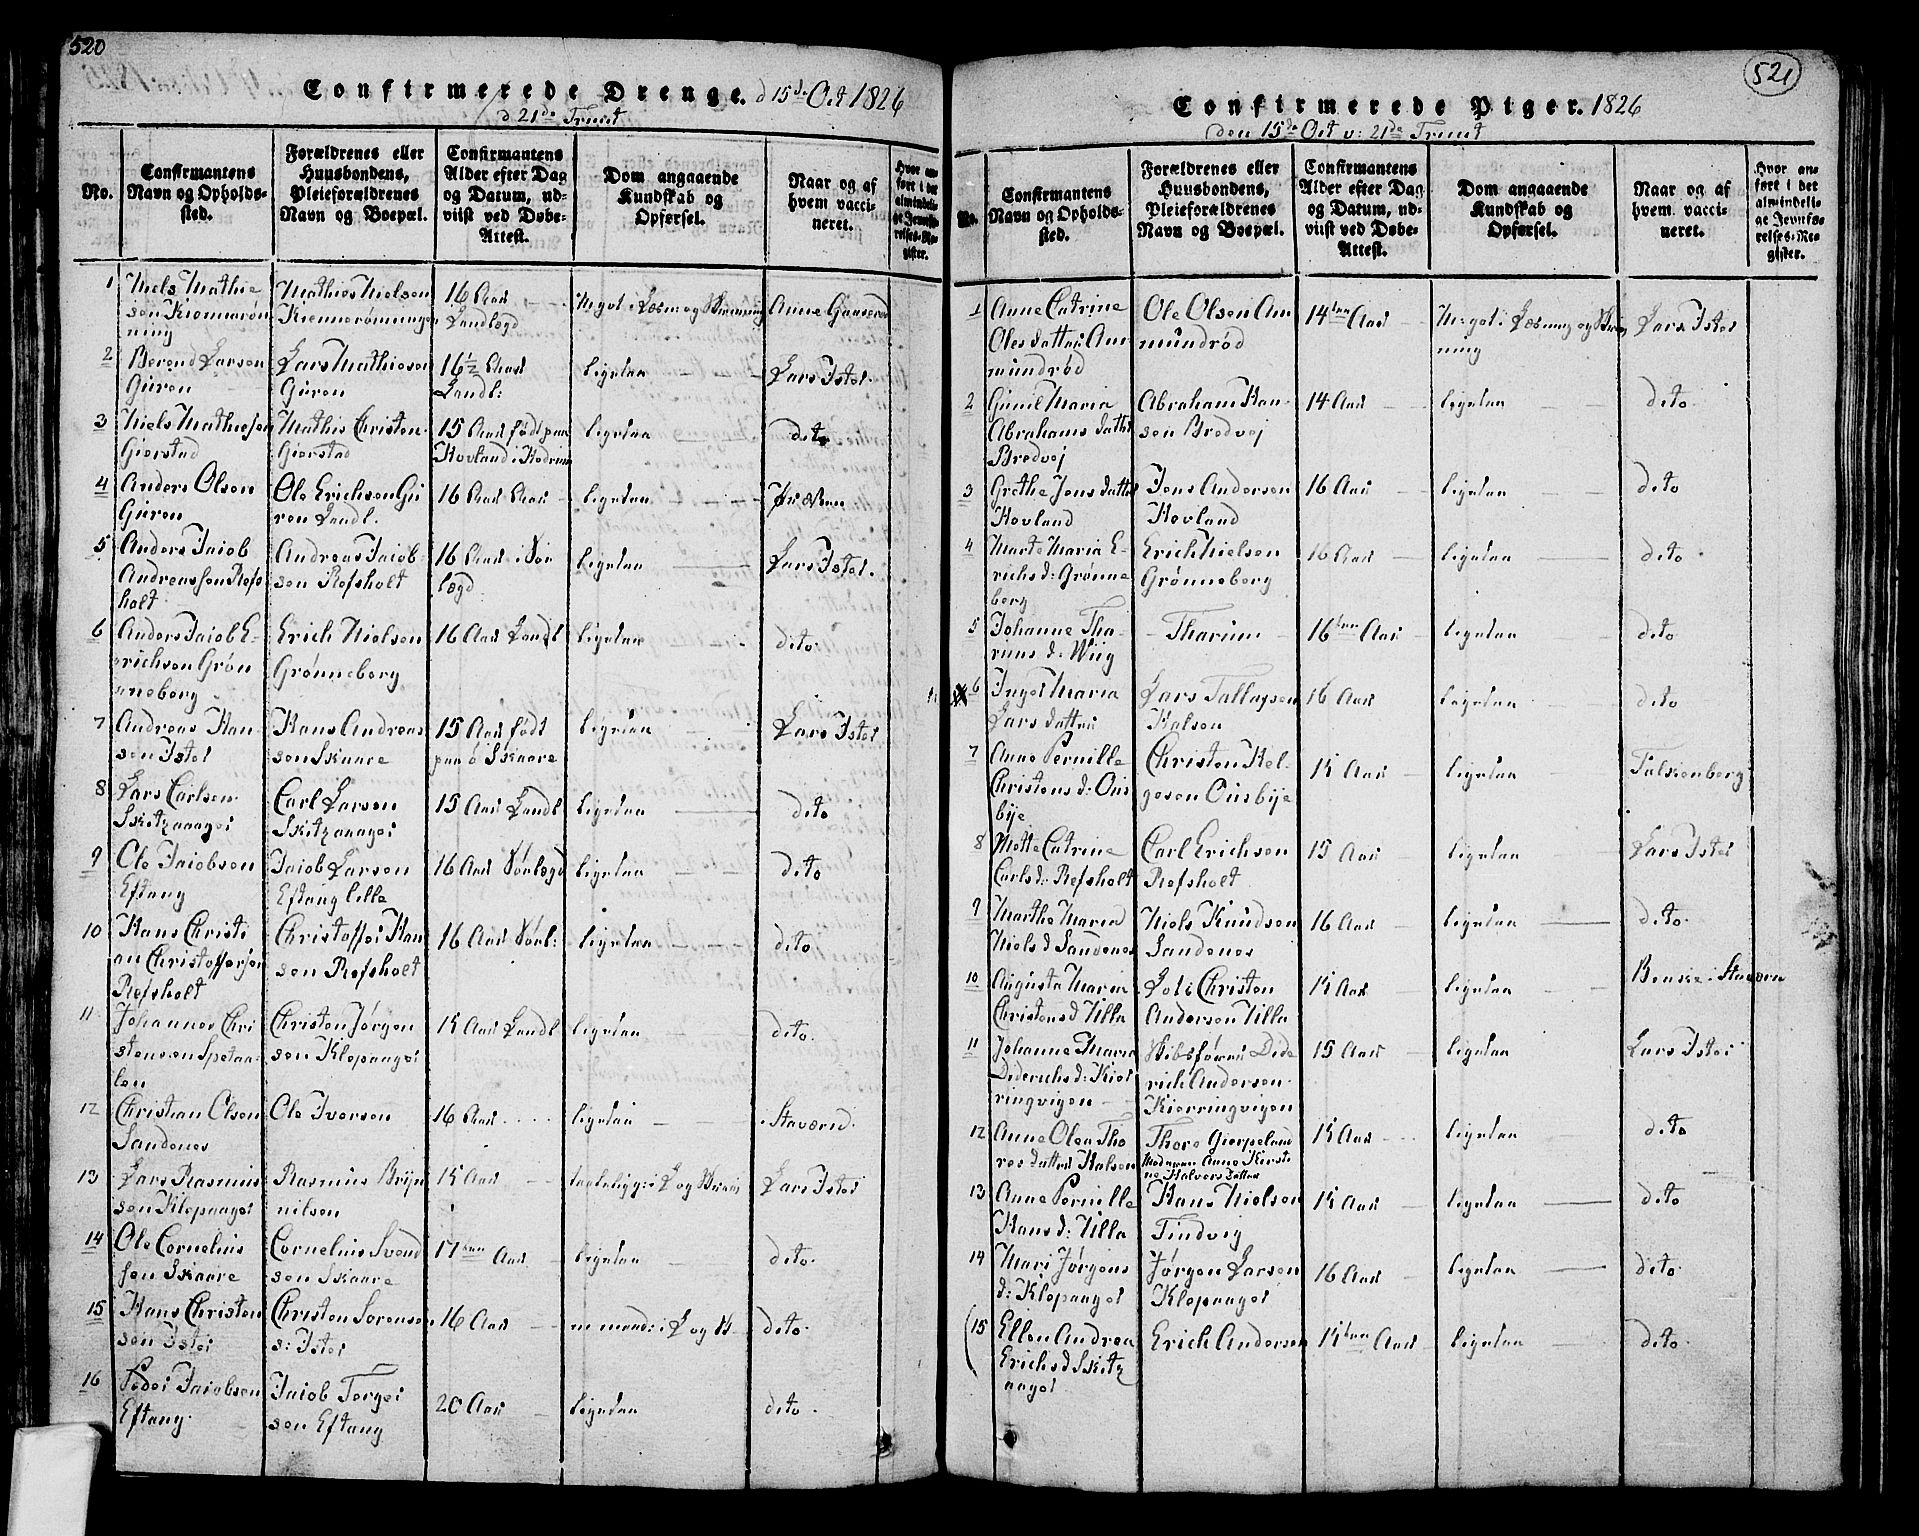 520
Confirmerede Drenge. d 15de Oct 1826
d 21de Trinit
No.
Confirmantens
Navn og Opholds-
sted.
Forældrenes eller
Huusbondens,
Pleieforældrenes
Navn og Boepæl.
Confirmantens
Alder efter Dag
og Datum, ud-
viist ved Døbe-
Attest.
Dom angaaende
Kundskab og
Opførsel.
Naar og af
hvem vacci-
neret.
Hvor an-
ført i det
almindeli-
ge Jevnfø-
relses-Re-
gister.
1
Niels Mathie
sen Kiønnerøn
ning
Mathies Nielsen
Kiennerønningen
16 Aar
Landlægd
Meget: Læsn: og
Anne
2
Berend Larsen
Guren
Lars Mathiesen
Guren
16½ Aar
Landl:
ligeledes
Lars Ister
3
Niels Mathiesen
Gierstad
Mathis Christen
Gierstad
15 Aar født paa
Hovland i Hedrum
ligeledes
dito
4
Anders Olsen
Guren
Ole Erichsen Gu
ren Landl.
16 Aar
ligeledes
Præsten
5
Anders Jacob
Andreassen Refs
holt
Andreas Jacob
sen Refsholt
16 Aar i Søe
lægd
ligeledes
Lars Ister
6
Anders Jacob E
richsen Grøn
neberg
Erich Nielsen
Grønneberg
16 Aar Landl
ligeledes
dito
7
Andreas Han
sen Ister
Hans Andreas
sen Skaare
15 Aar født
paa ø Skaare
ligeledes
Lars Ister
8
Lars Carlsen
Skitzaager
Carl Larsen
Skitzaaager
15 Aar Landl
ligeledes
dito
9
Ole Jacobsen
Eftang
Jacob Larsen
Eftang lille
16 Aar Søelægd
ligeledes
dito
10
Hans Christi
an Christoffersen
Refsholt
Christoffer Han
sen Refsholt
16 Aar Søel:
ligeledes
dito
11
Johannes Chri
stensen Spetaa
len
Christen Jørgen
sen Klepaager
15 Aar Landl
ligeledes
dito
12
Christian Olsen
Sandenes
Ole Iversen
16 Aar
ligeledes
i Staværn
13
Lars Rasmus
sen Klepaager
Rasmus Bryn
nilsen
15 Aar
L og
Lars Ister
14
Ole Cornelius
sen Skaare
Cornelius Svend
sen Skaare
17 Aar
ligeledes
dito
15
Hans Christen
sen Ister
Christen Sørensen
s: Ister
16 Aar
L og
dito
16
Peder Jacobsen
Eftang
Jacob Torger
sen Eftang
20 Aar
ligeledes
dito
521
Confirmerede Piger. 1826
den 15de Oct v: 21de Trinit
No.
Confirmantens
Navn og Opholds-
sted.
Forældrenes eller
Huusbondens,
Pleieforældrenes
Navn og Boepæl.
Confirmantens
Alder efter Dag
og Datum, ud-
viist ved Døbe-
Attest.
Dom angaaende
Kundskab og
Opførsel.
Naar og af
hvem vacci-
neret.
Hvor an-
ført i det
almindeli-
ge Jevnfø-
relses-Re-
gister.
1
Anne Catrine
Olesdatter Am
mundrød
Ole Olsen Am
mundrød
14 Aar
Meget: Læsning og
ning
Lars Ister
2
Gunil Maria
Abrahams datter
Bredvej
Abraham Han
sen Bredvej
14 Aar
ligeledes
dito
3
Grethe Jens datter
Hovland
Jens Andersen
Hovland
16 Aar
ligeledes
dito
4
Marte Maria E
richs d: Grønne
berg
Erich Nielsen
Grønneberg
16 Aar
ligeledes
dito
5
Johanne Tha
rums d: Wiig
16 Aar
ligeledes
dito
6
Inger Maria
Lars datter
Lars Tallagsen
Halsen
16 Aar
ligeledes
dito
7
Anne Pernille
Christens d: Ons
bye
Christen Hel
gesen Onsbye
15 Aar
ligeledes
Falkenberg
8
Mette Catrine
Carlsd: Refsholt
Carl Erichsen
Refsholt
15 Aar
ligeledes
Lars Ister
9
Marthe Maria
Niels d Sandenes
Niels Knudsen
Sandenes
16 Aar
ligeledes
dito
10
Augusta Maria
Christens d Filla
Christen
Andersen Filla
15 Aar
ligeledes
i Staværn
11
Johanne Maria
Diderichs d: Kier
ringvigen
Skibsfører Dide
rich Andersen
Kierringvigen
15 Aar
ligeledes
Lars Ister
12
Anne Olea Tho
res datter Halsen
Thore Gierpeland
Moderen Anne Kirsti
ne Halvors datter
15 Aar
ligeledes
dito
13
Anne Pernille
Hans d: Filla
Hans Nielsen
Tindvig
15 Aar
ligeledes
dito
14
Mari Jørgens
d: Klepaager
Jørgen Larsen
Klepaager
16 Aar
ligeledes
dito
15
Ellen Andrea
Erichs d Skitz
aager
Erich Andersen
15 Aar
ligeledes
dito